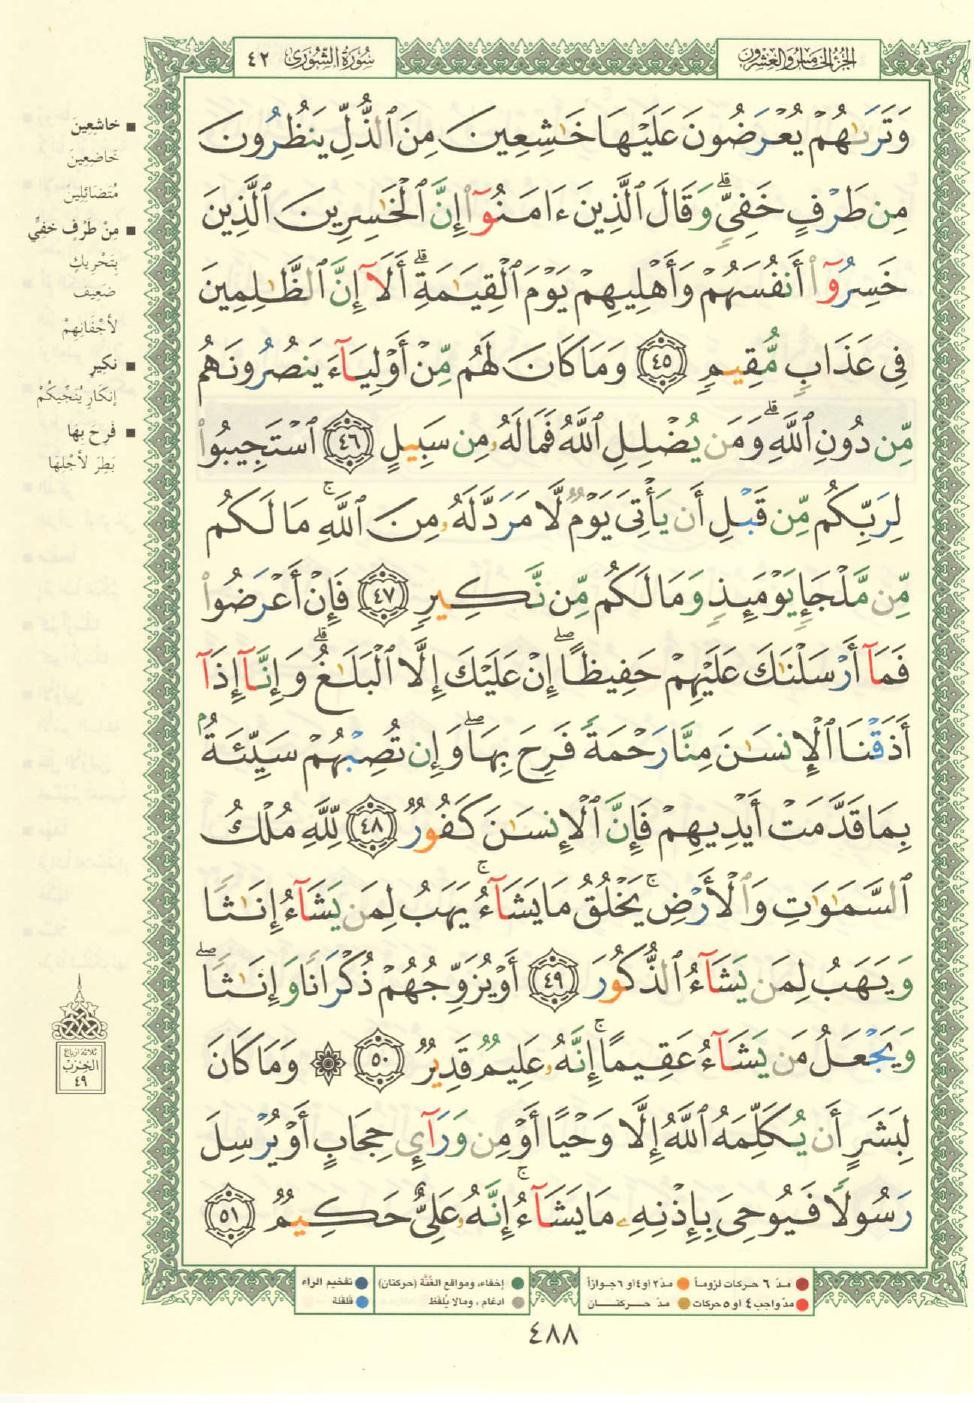 سُورَةُ الشُّورَىٰ ٤٢
الجُزْءُ الخَامِسُ وَالعِشْرُون
وَتَرَىٰهُمْ يُعْرَضُونَ عَلَيْهَا خَٰشِعِينَ مِنَ ٱلذُّلِّ يَنظُرُونَ
مِن طَرْفٍ خَفِىٍّۗ وَقَالَ ٱلَّذِينَ ءَامَنُوٓا۟ إِنَّ ٱلْخَٰسِرِينَ ٱلَّذِينَ
خَسِرُوٓا۟ أَنفُسَهُمْ وَأَهْلِيهِمْ يَوْمَ ٱلْقِيَٰمَةِۗ أَلَآ إِنَّ ٱلظَّٰلِمِينَ
فِى عَذَابٍ مُّقِيمٍ ٤٥ وَمَا كَانَ لَهُم مِّنْ أَوْلِيَآءَ يَنصُرُونَهُم
مِّن دُونِ ٱللَّهِۗ وَمَن يُضْلِلِ ٱللَّهُ فَمَا لَهُۥ مِن سَبِيلٍ ٤٦ ٱسْتَجِيبُوا۟
لِرَبِّكُم مِّن قَبْلِ أَن يَأْتِىَ يَوْمٌ لَّا مَرَدَّ لَهُۥ مِنَ ٱللَّهِۚ مَا لَكُم
مِّن مَّلْجَإٍ يَوْمَئِذٍ وَمَا لَكُم مِّن نَّكِيرٍ ٤٧ فَإِنْ أَعْرَضُوا۟
فَمَآ أَرْسَلْنَٰكَ عَلَيْهِمْ حَفِيظًاۖ إِنْ عَلَيْكَ إِلَّا ٱلْبَلَٰغُۗ وَإِنَّآ إِذَآ
أَذَقْنَا ٱلْإِنسَٰنَ مِنَّا رَحْمَةً فَرِحَ بِهَاۖ وَإِن تُصِبْهُمْ سَيِّئَةٌۢ
بِمَا قَدَّمَتْ أَيْدِيهِمْ فَإِنَّ ٱلْإِنسَٰنَ كَفُورٌ ٤٨ لِّلَّهِ مُلْكُ
ٱلسَّمَٰوَٰتِ وَٱلْأَرْضِۚ يَخْلُقُ مَا يَشَآءُۚ يَهَبُ لِمَن يَشَآءُ إِنَٰثًا
وَيَهَبُ لِمَن يَشَآءُ ٱلذُّكُورَ ٤٩ أَوْ يُزَوِّجُهُمْ ذُكْرَانًا وَإِنَٰثًاۖ
وَيَجْعَلُ مَن يَشَآءُ عَقِيمًاۚ إِنَّهُۥ عَلِيمٌ قَدِيرٌ ٥٠ ۞ وَمَا كَانَ
لِبَشَرٍ أَن يُكَلِّمَهُ ٱللَّهُ إِلَّا وَحْيًا أَوْ مِن وَرَآئِ حِجَابٍ أَوْ يُرْسِلَ
رَسُولًا فَيُوحِىَ بِإِذْنِهِۦ مَا يَشَآءُۚ إِنَّهُۥ عَلِىٌّ حَكِيمٌ ٥١
■ خَاشِعِينَ
خَاضِعِينَ
مُتَضَائِلِينَ
■ مِنْ طَرْفٍ خَفِيٍّ
بِتَحْرِيكٍ
ضَعِيف
لأَجْفَانِهِمْ
■ نَكِيرٍ
إِنكَارٍ يُنَجِّيكُمْ
■ فَرِحَ بِهَا
بَطِرَ لأَجْلِهَا
ثلاثة أرباع
الحِزْبُ
٤٩
مدّ ٦ حركات لزوماً
مدّ ٢ أو ٤ أو ٦ جوازاً
مدّ واجب ٤ أو ٥ حركات
مدّ حركتان
إخفاء، ومواقع الغُنَّة (حركتان)
ادغام، ومالا يُلفَظ
تفخيم الراء
قلقلة
٤٨٨